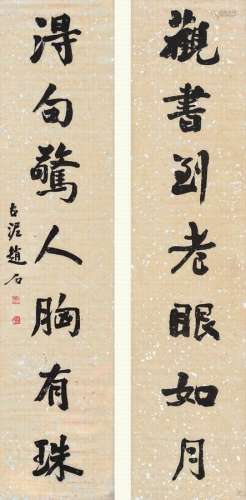 觀書到老眼如月
得句驚人胸有珠
古泥趙石